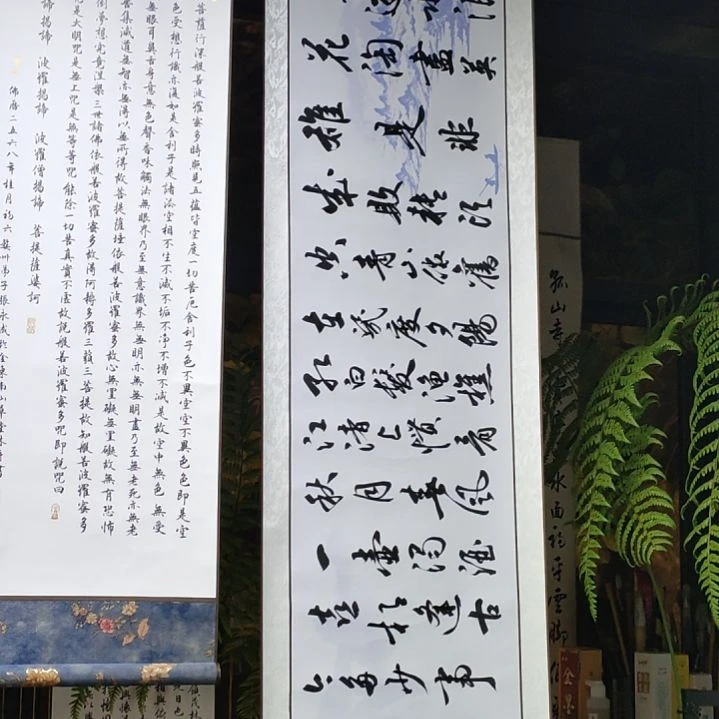 花淘盡英
雄是非
成敗轉頭
空青山依舊
在幾度夕陽
紅白髮漁樵
江渚上慣看
秋月春風
一壺濁酒
喜相逢古
今多少事
菩薩行深般若波羅蜜多時照見五蘊皆空度一切苦厄舍利子色不異空空不異色色即是空
色受想行識亦復如是舍利子是諸法空相不生不滅不垢不淨不增不減是故空中無色無受
無眼耳鼻舌身意無色聲香味觸法無眼界乃至無意識界無無明亦無無明盡乃至無老死亦無老
苦集滅道無智亦無得以無所得故菩提薩埵依般若波羅蜜多故心無罣礙無罣礙故無有恐怖
倒夢想究竟涅槃三世諸佛依般若波羅蜜多故得阿耨多羅三藐三菩提故知般若波羅蜜多
是大明咒是無上咒是無等等咒能除一切苦真實不虛故說般若波羅蜜多咒即說咒曰
諦揭諦 波羅揭諦 波羅僧揭諦 菩提薩婆訶
佛曆二五六八年桂月初六
孤山寺
水面初平雲脚
金墨